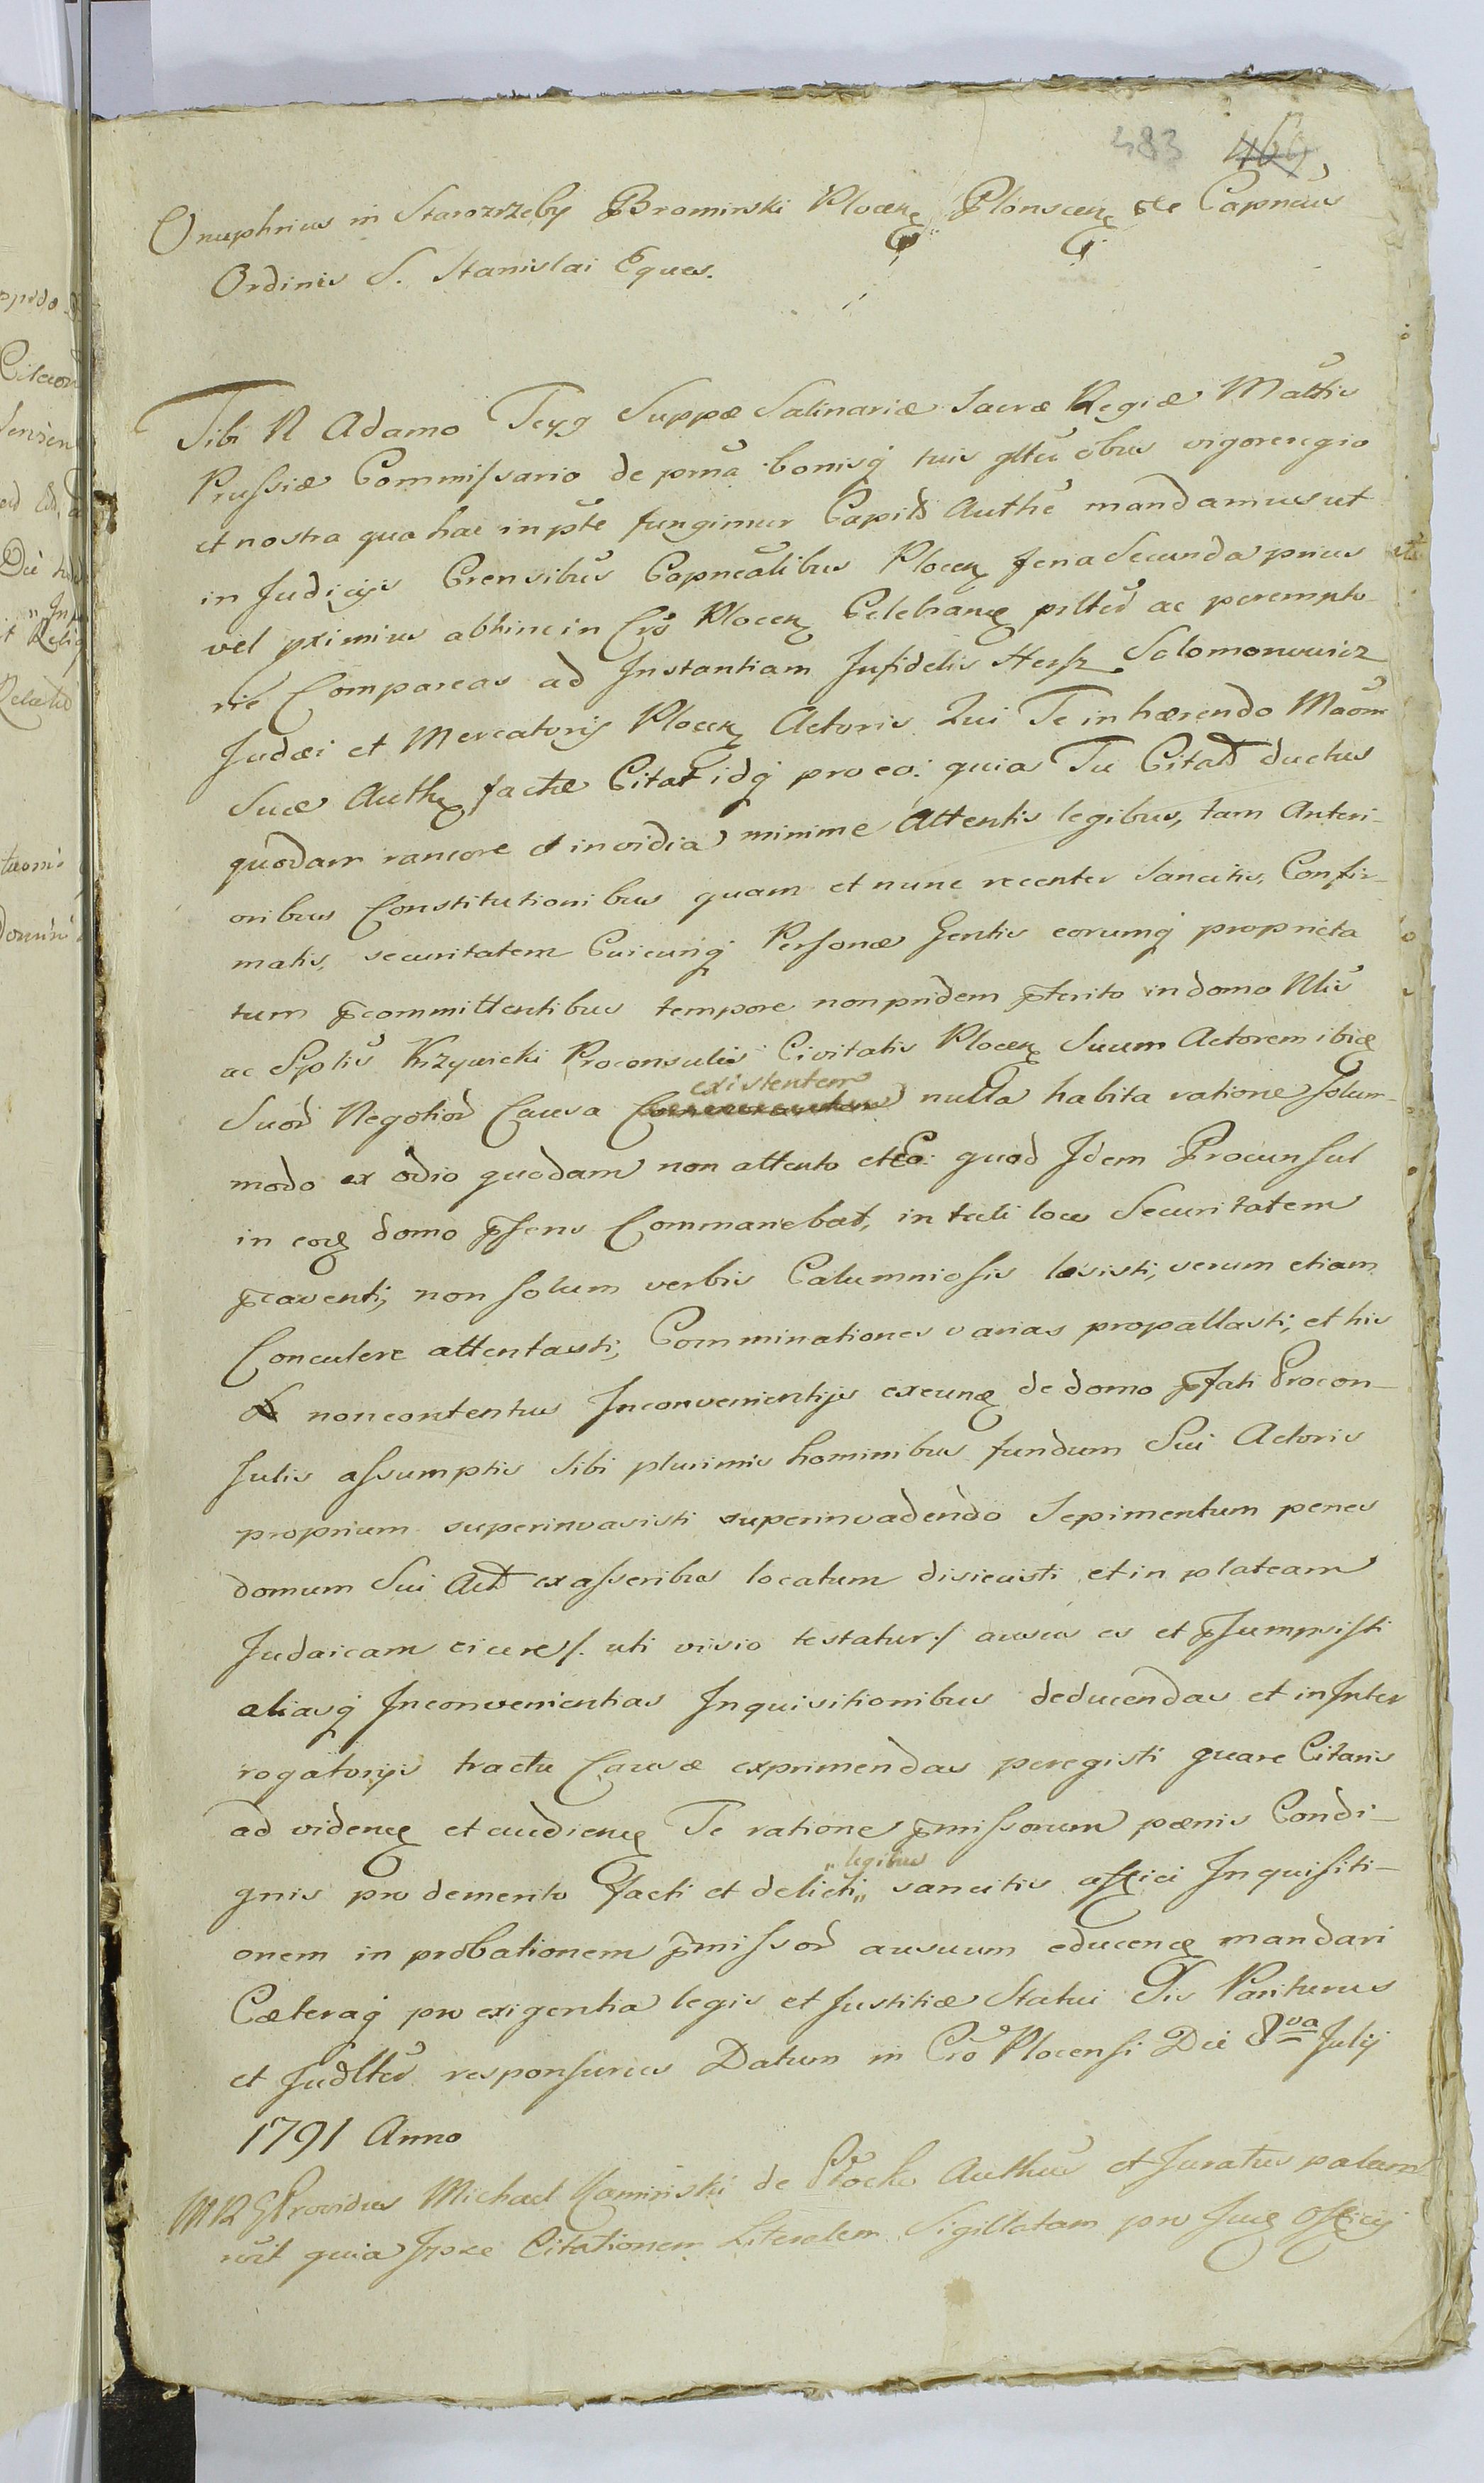 483 469,
Onuphrius in Starozrzeby Brominski Plocen Plonscen &c Capneus
Ordinis S. Stanislai Eques.
Tibi N Adamo Teyg Suppæ Salinariæ Sacræ Regiæ Mattis
Prussiæ Commissario de prna bonisq tuis gltu obus vigore regio
et nostra qua hac in pte fungimur Capitd Authe mandamus ut
in Judicijs Crensibus Capnealibus Plocen feria Secunda prius
vel pximius abhinc in Cro Plocen Celebran pslter ac perempto-
rie Compareas ad Instantiam Infidelis Hersz Solomonowicz
Judæi et Mercatoris Plocen Actoris Qui Te inhærendo Maom
Suæ Auth factæ Citat idq pro eo: quia Tu Citatd ductus
quodam rancore et invidia minime Attentis legibus, tam Anteri-
oribus Constitutionibus quam et nunc recenter Sancitis, Confir-
matis, securitatem Cuicunq Personæ Gentis eorumq proprieta
tum pcommittentibus tempore non pridem pterito in domo Nlis
ac Spblis Krzywicki Proconsulis Civitatis Plocen Suum Actorem ibiq
existentem
Suor Negotior Causa nulla habita ratione solum-
modo ex odio quodam non attento et eo: quod Idem Proconsul
in eoq domo psens Commanebat, in tali loco Securitatem
pcaventi, non solum verbis Calumniosis læsisti, verum etiam
Conculere attentasti, Comminationes varias propallasti, et his
non contentus Inconvenientijs exeun de domo pfati Procon-
sulis assumptis sibi plurimis hominibus fundum Sui Actoris
proprium superinvasisti superinvadendo Sepimentum penes
domum Sui Actd ex asseribus locatum disiecisti et in plateam
Judaicam eicere /. uti visio testatur ./ ausus es et psumpsisti
aliasq Inconvenientias Inquisitionibus deducendas et in Inter
rogatorijs tractu Causæ exprimendas peregisti quare Citaris
ad viden et audien Te ratione pmissorum pœnis Condi-
„ legibus
gnis pro demerito facti et delicti „ sancitis affici Inquisiti-
onem in probationem pmissor ausuum educen mandari
Cæteraq pro exigentia legis et Justitiæ Statui Sis Pariturus
et Judlter responsurus Datum in Cro Plocensi Die 8va Julij
1791 Anno
MRG Providus Michael Kaminski de Plocko Authus et Juratus palam
rcit quia Ipse Citationem Literalem Sigillatam pro Sui Officij